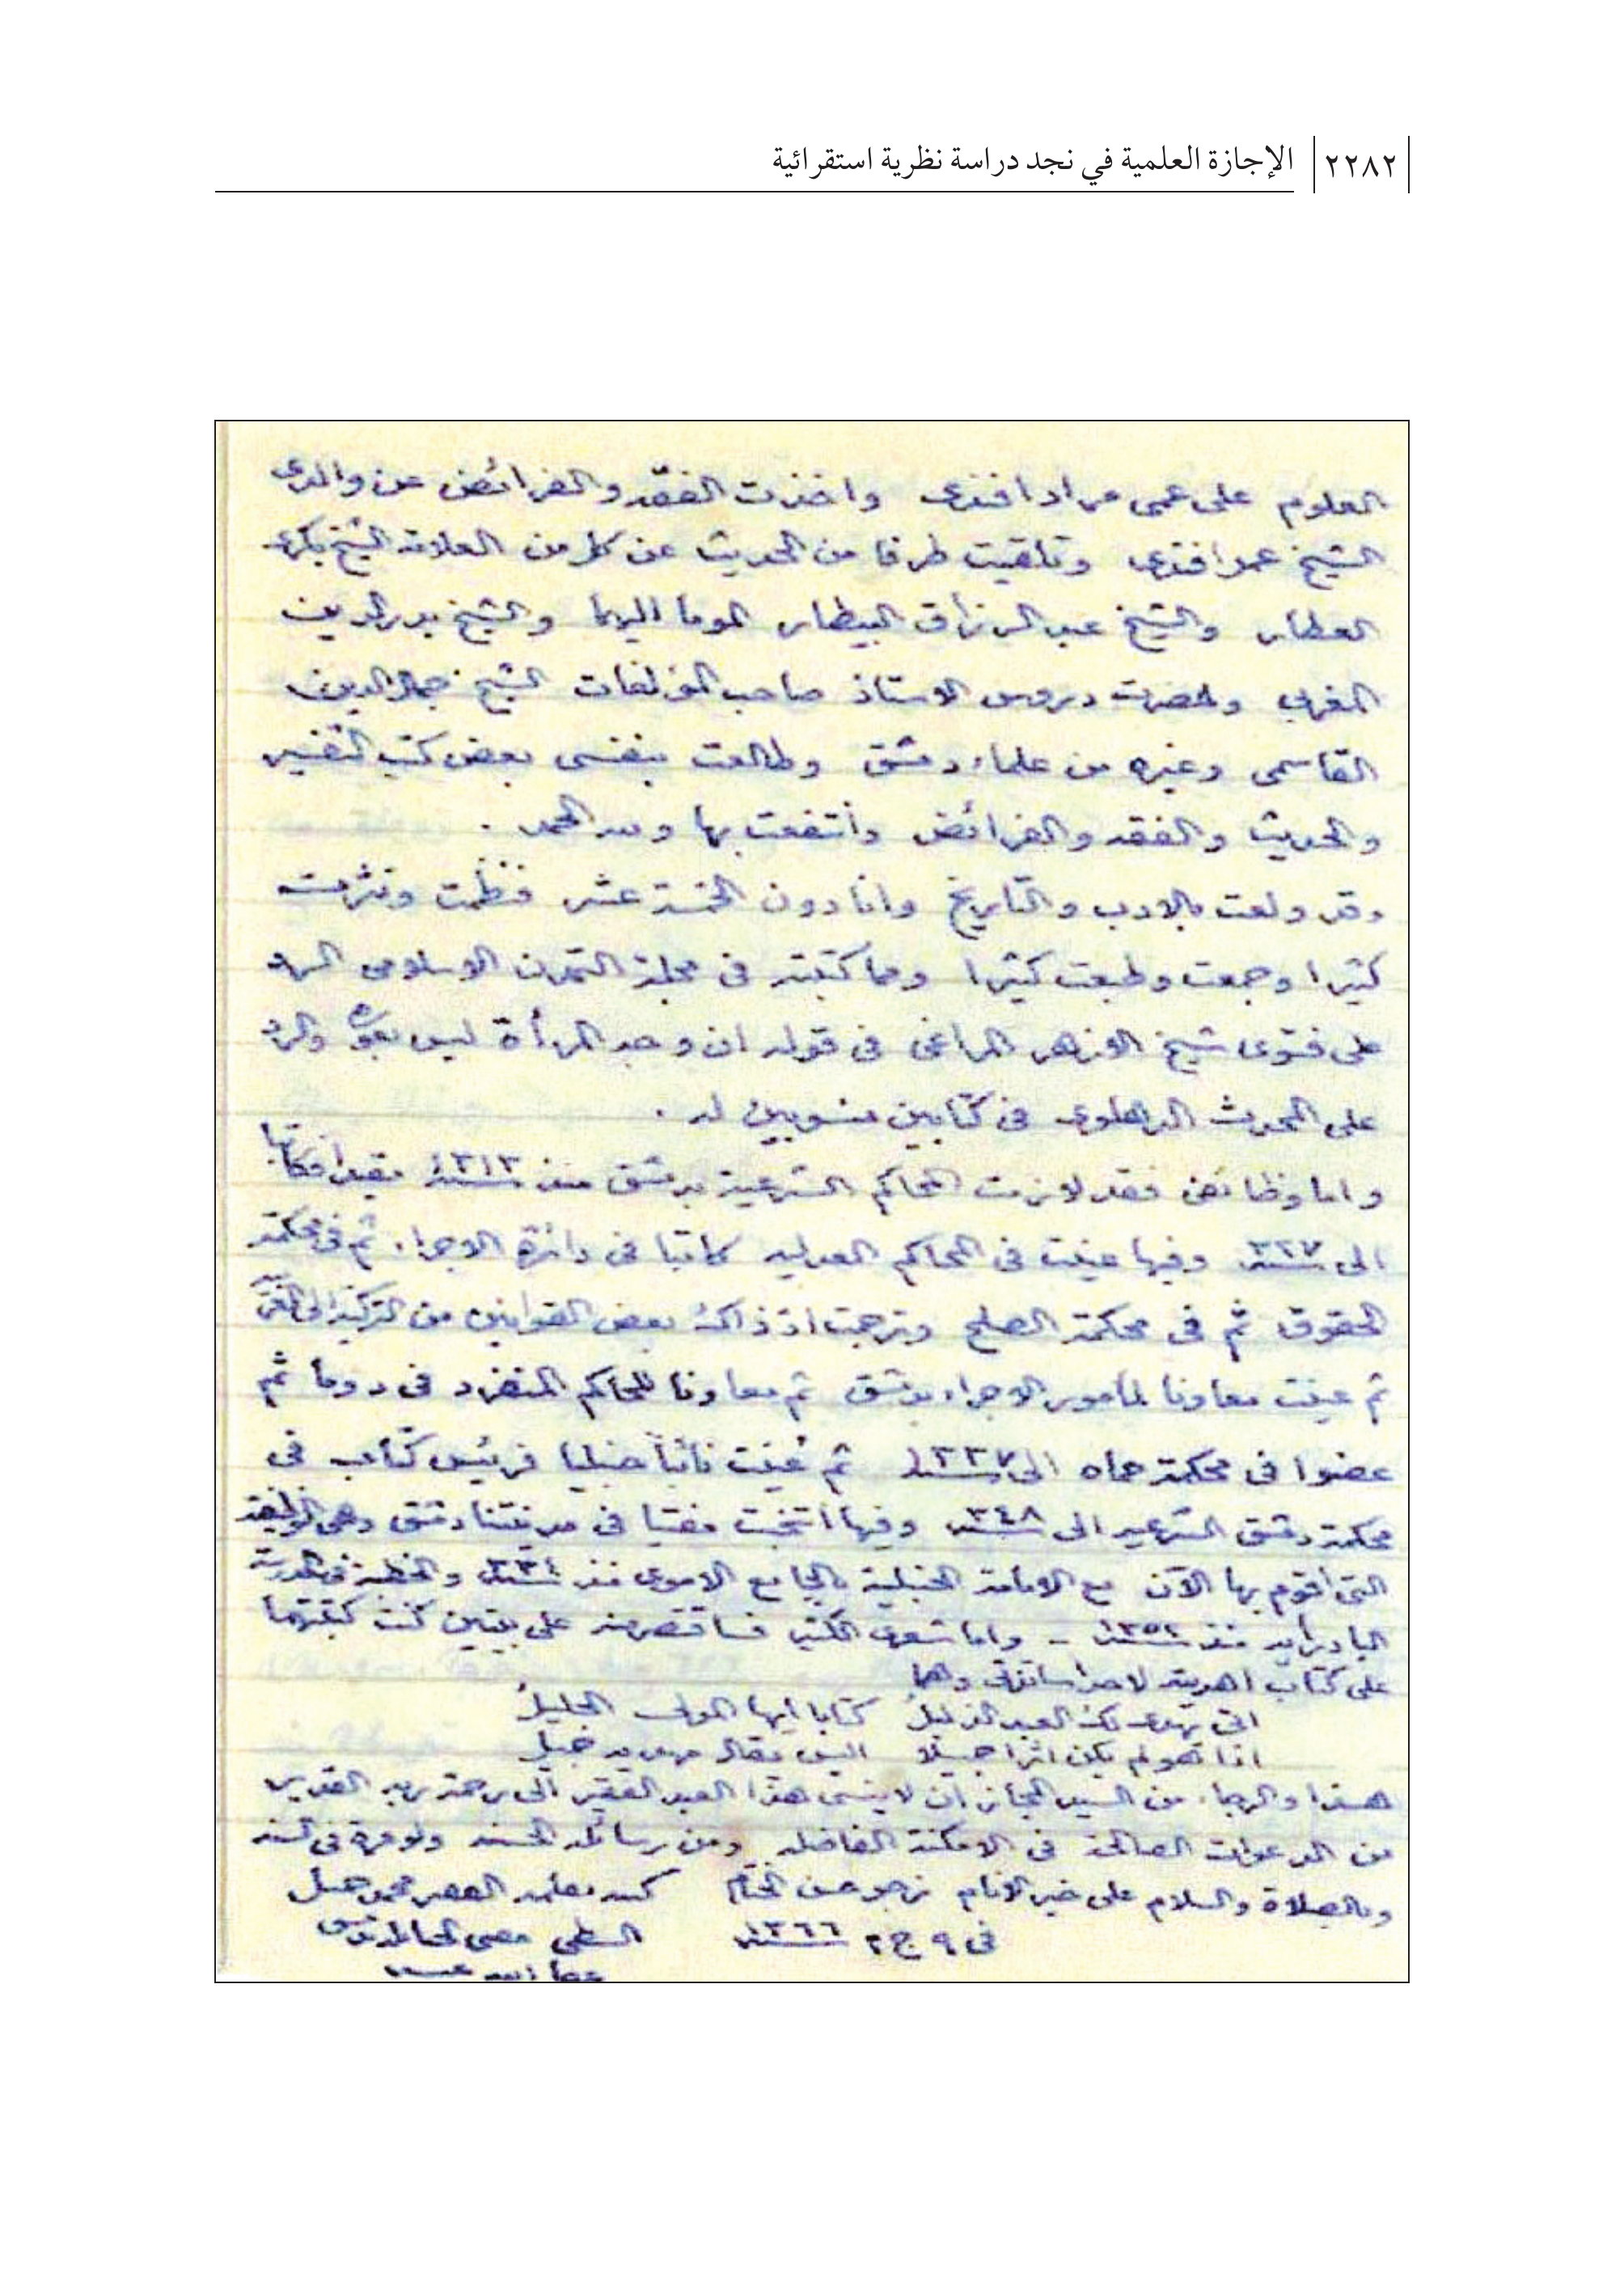 ٢٢٨٢ الإجازة العلمية في نجد دراسة نظرية استقرائية
العلوم على عمى مراد افندى واخذت الفقه والفرائض عن والدى
الشيخ عمر افندى وتلقيت طرفا من الحديث عن كل من العلامة الشيخ بكرى
العطار والشيخ عبد الرزاق البيطار الموما اليهما والشيخ بدر الدين
المغربى وحضرت دروس الاستاذ صاحب المؤلفات الشيخ جمال الدين
القاسمى وغيره من علماء دمشق وطالعت بنفسى بعض كتب التفسير
والحديث والفقه والفرائض وانتفعت بها ولله الحمد .
وقد ولعت بالادب والتاريخ وانا دون الخمسة عشر فنظمت ونثرت
كثيرا وجمعت وطبعت كثيرا ومما كتبته فى مجلة التمدن الاسلامى الرد
على فتوى شيخ الازهر المراغى فى قوله ان وجه المرأة ليس بعورة والرد
على المحدث الدهلوى فى كتابين منسوبين له .
واما وظائفى فقد لازمت المحاكم الشرعية بدمشق منذ سنة ١٣١٣ مقيدا فكاتبا
الى سنة ٣٢٧ وفيها عينت فى المحاكم العدلية كاتبا فى دائرة الاجراء ثم فى محكمة
الحقوق ثم فى محكمة الصلح وترجمت اذ ذاك بعض القوانين من التركية الى العربية
ثم عينت معاونا لمأمور الاجراء بدمشق ثم معاونا للحاكم المنفرد فى دوما ثم
عضوا فى محكمة حماه الى سنة ١٣٣٧ ثم عينت نائبا حنبليا فرئيس كتاب فى
محكمة دمشق الشرعية الى سنة ٣٤٨ وفيها انتخبت مفتيا فى مدينتنا دمشق وهى الوظيفة
التى اقوم بها الآن مع الامامة الحنبلية بالجامع الاموى منذ سنة والخطبة فى المدرسة
البادرائية منذ سنة - واما شعرى الكثير فساقتصر منه على بيتين كنت كتبتهما
على كتاب اهديته لاحد اساتذتى وهما
اتى يهدى لك العبد الذليل كتابا ايها المولى الجليل
اذا هو لم يكن اثرا جميلا اليس يقال مهديه جميل
هذا والرجاء من السيد المجاز ان لا ينسى هذا العبد الفقير الى رحمة ربه القدير
من الدعوات الصالحة فى الامكنة الفاضلة ومن رسائله الحسنة ولو مرة فى السنة
وبالصلاة والسلام على خير الانام نرجو حسن الختام كتبه بقلمه الفقير محمد جميل
فى ٩ ج ٢ سنة ١٣٦٦ الشطى مفتى الحنابلة بدمشق
عفا الله عنه